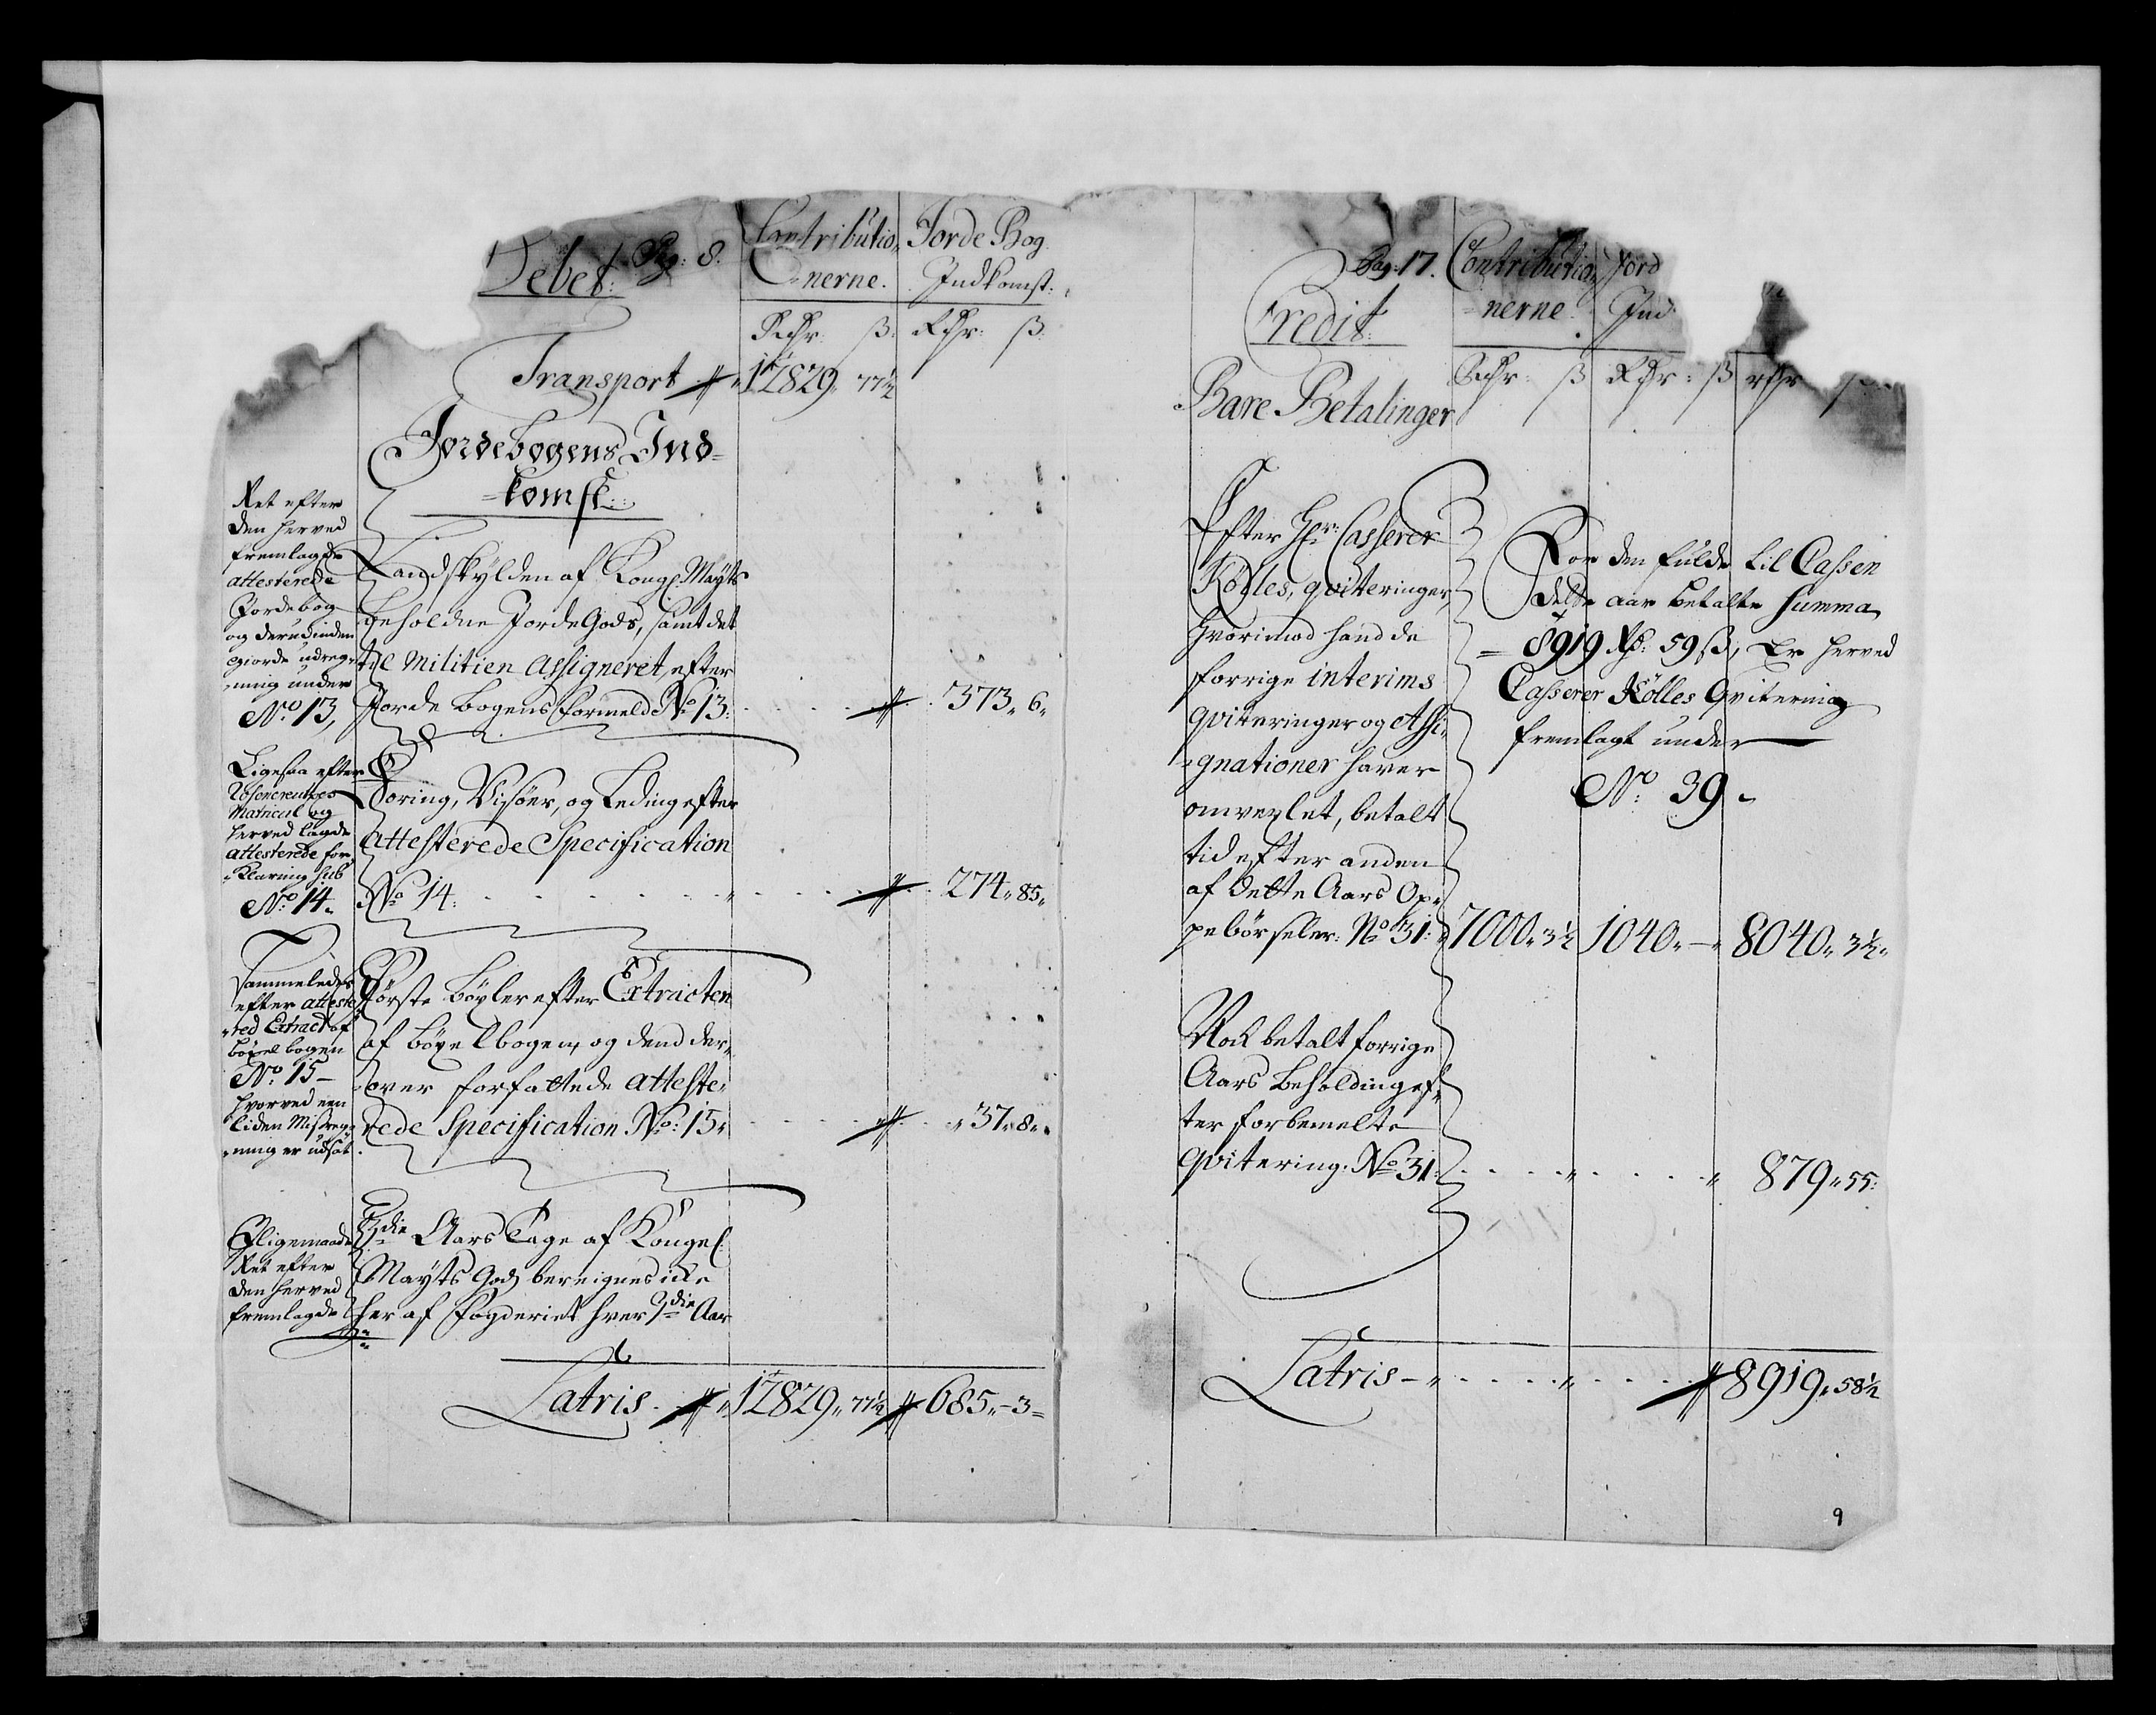 Debet
Pag: 8.
Contributio
=nerne.
Jorde Bog
Indkomst:
Rdr: ß:
Rdr: ß
Transport 12829 77½
Jordebogens Ind=
=komst:
Ret efter
den herved
fremlagde
attesterede
Jordebog
og derudinden
giorde udreg=
=ning under
No. 13,
Landskylden af Kongl: Mayts
beholdne JordeGods, samt det
til Militien assigneret, efter
Jorde bogens formeld No 13: 373„ 6„
Ligesaa efter
Rosencreutzes
Matricul og
herved lagde
attesterede for=
=klaring sub
No. 14„
Foring, Visöer, og Leding efter
attesterede Specification
No 14: 274„ 85„
Sammeledes
efter atteste
=red Extract af
böxel bogen
No. 15 –
hvorved een
liden Misreg=
=ning er udsat
Förste böxler efter Extracten
af böxelbogen, og dend der=
=over forfattede atteste=
rede Specification No: 15„ „37„ 8„
Ligemaade
Ret efter
den herved
fremlagde
3die Aars Tage af Kongel:
Mayts Gods beregnes icke
her af Fogderiet hver 3die Aar
Latris 12829„ 77½ 685„ – 3 =
Pag: 17.
Credit
Contributio
=nerne
Jord
Ind
Rdr: ß
Rdr: ß
rdr
Bare Betalinger
Efter Hr: Casserer
Kölles, qviteringer,
hvorimod hand de
forrige interims
qviteringer og Assi=
=gnationer haver
omvexlet, betalt
tid efter anden
af dette Aars Op=
pebörseler: No 31: 7000„ 3½ 1040„ – „ 8040„ 3½„
For den fulde til Cassen
dette aar betalte summa
= 8919 Rd: 59 ß, Er herved
Casserer Kölles Qvitering
fremlagt under
No: 39 „
Nok betalt forrige
Aars beholding ef=
ter forbemelte
qvitering: No 31: 879„ 55:
Latris – „ 8919„ 58½
9